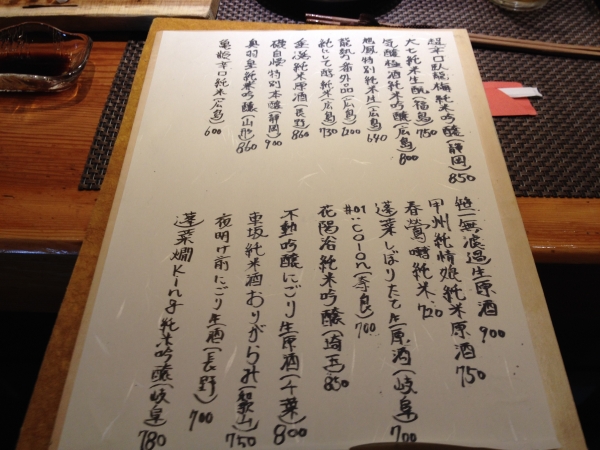 超辛口臥龍梅純米吟醸(静岡)850
大七純米生酛(福島)750
誠鏡極酒純米吟醸(広島)800
鳳特別純米生(広島)640
龍勢番外品(広島)1200
純米(広島)730
純米原酒(長野)860
磯自慢特別本醸(静岡)900
奥羽皇純米吟醸(山形)860
亀齢辛口純米(広島)600
笹一無濾過生原酒 900
甲州純情娘純米原酒 750
春鶯囀純米 720
蓬莱しぼりたて生原酒(岐阜)700
#01 : colon(奈良)700
花陽浴純米吟醸(埼玉)850
不動吟醸にごり生原酒(千葉)800
車坂純米酒おりがらみ(和歌山)750
夜明け前にごり生酒(長野)700
蓬莱燗King純米吟醸(岐阜)780